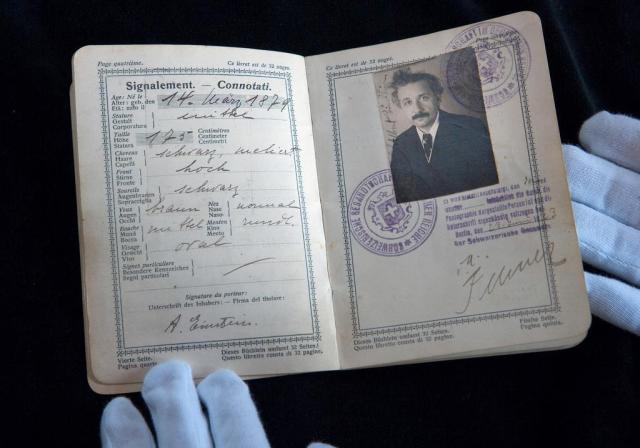 Page quatrième.
Ce livret est de 32 pages.
Signalement. — Connotati.
Age: Né le
Alter: geb. den
Età: nato il
14. März 1879
Stature
Gestalt
Corporatura
mittel
Taille
Höhe
Statura
175
Centimètres
Centimeter
Centimetri
Cheveux
Haare
Capelli
schwarz, meliert
Front
Stirne
Fronte
hoch
Sourcils
Augenbrauen
Sopracciglia
schwarz
Yeux
Augen
Occhi
braun
Nez
Nase
Naso
normal
Bouche
Mund
Bocca
mittel
Menton
Kinn
Mento
rund.
Visage
Gesicht
Viso
oval
Signes particuliers
Besondere Kennzeichen
Segni particolari
Signature du porteur:
Unterschrift des Inhabers: — Firma del titolare:
A. Einstein.
Vierte Seite.
Pagina quarta.
Dieses Büchlein umfasst 32 Seiten.
Questo libretto conta di 32 pagine.
Ce livret est de 32 pages.
Page
SCHWEIZERISCHE GESANDTSCHAFT
Photographie dargestellte Person ist und die
Unterschrift eigenhändig vollzogen hat.
Berlin, den
der Schweizerische Gesandte
Dieses Büchlein umfasst 32 Seiten.
Questo libretto conta di 32 pagine.
Fünfte Seite.
Pagina quinta.